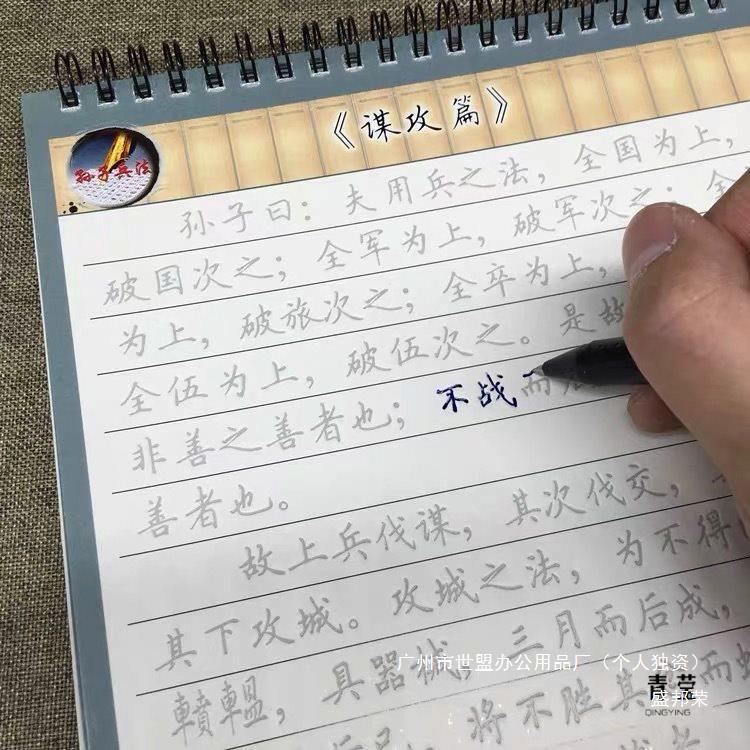 《谋攻篇》
孙子兵法
孙子曰：夫用兵之法，全国为上，
破国次之；全军为上，破军次之；全
为上，破旅次之；全卒为上，
全伍为上，破伍次之。是故
非善之善者也；不战而
善者也。
故上兵伐谋，其次伐交，
其下攻城。攻城之法，为不得
轒輼，具器械，三月而后成，
将不胜其
而
广州市世盟办公用品厂（个人独资）
青莹
盛邦荣
QINGYING